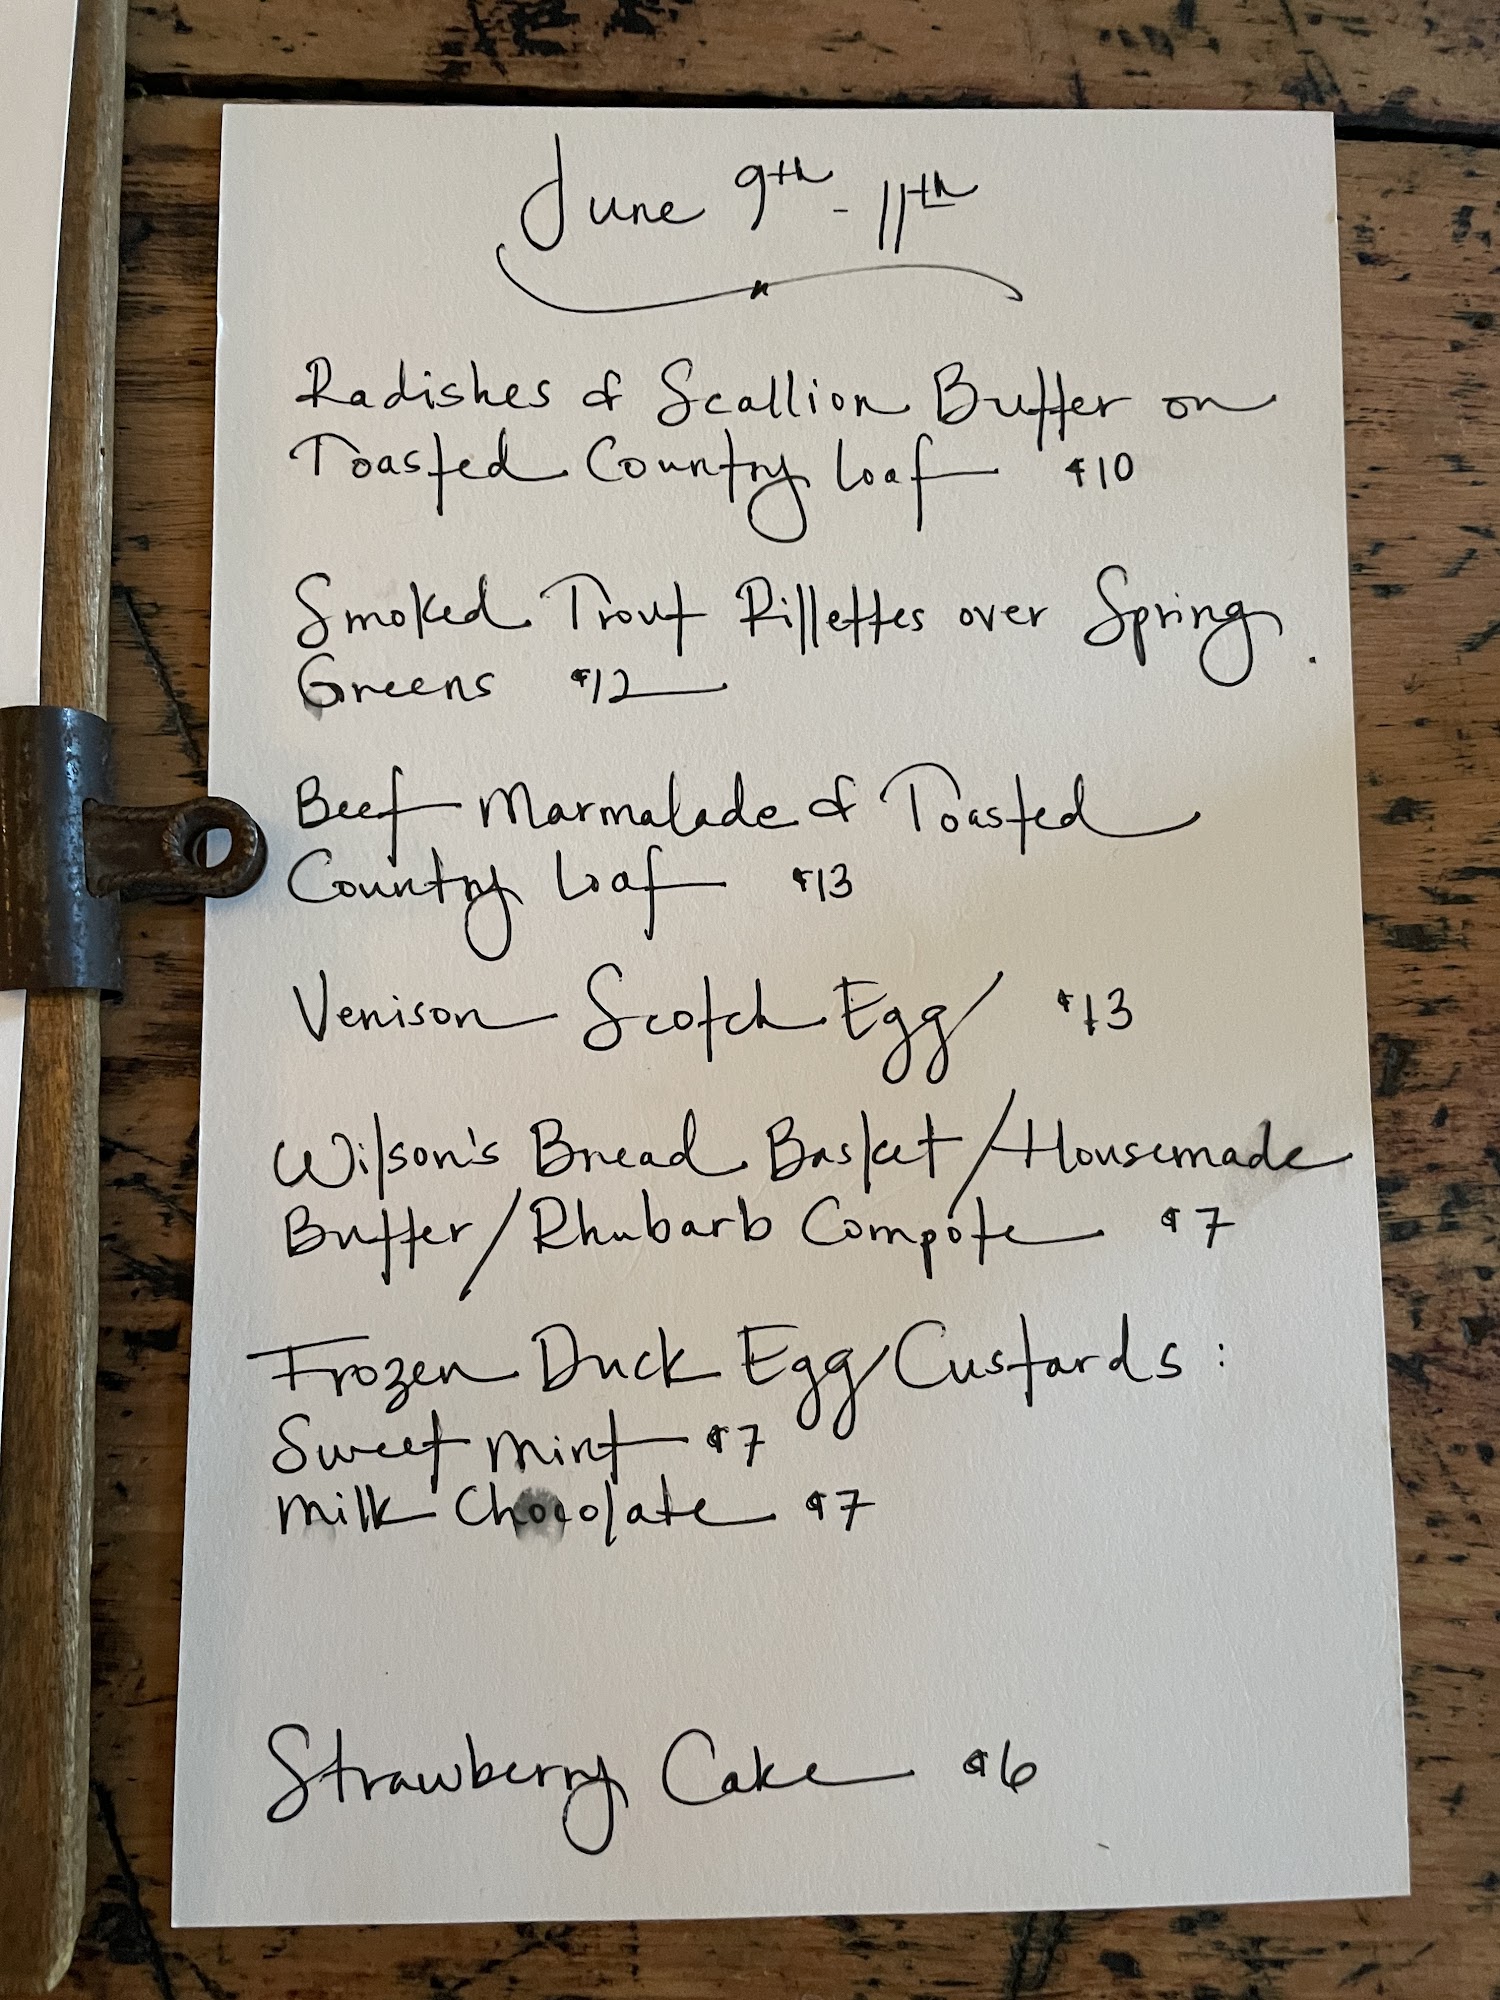 June 9th - 11th
Radishes & Scallion Butter on
Toasted Country Loaf $10
Smoked Trout Rillettes over Spring
Greens $12
Beef Marmalade & Toasted
Country Loaf $13
Venison Scotch Egg $13
Wilson's Bread Basket / Housemade
Butter / Rhubarb Compote $7
Frozen Duck Egg Custards :
Sweet Mint $7
Milk Chocolate $7
Strawberry Cake $6